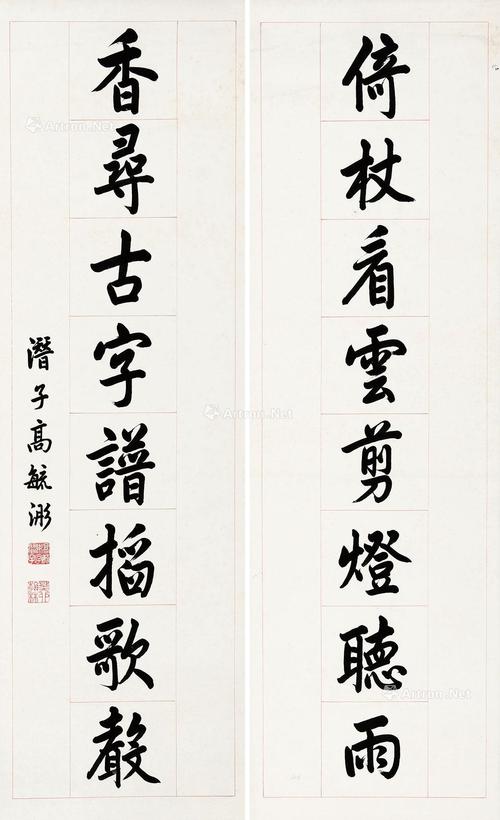 倚杖看雲剪燈聽雨
香尋古字譜搯歌聲
潛子高毓浵
Artron.Net
Artron.Net
Artron.Net